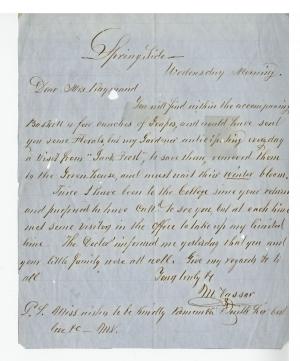 Spring Side —
Wednesday Morning.
Dear Mrs Raymond
You will find within the accompanying
Baskett a few bunches of Grapes, and would have sent
you some Floral, but my Gardner anticipating everyday
a Visit from "Jack Frost", to save them, removed them
to the Green house, and must wait their winter bloom.
Twice I have been to the College since your return
and prepared to have Calld to see you, but at each time
met some visitor in the Office to take up my limited
time. The Doctor informed me yesterday that you and
your little family were all well. Give my regards to
all
Truly &c
M Vassar
P.S. Miss wishes to be kindly
love &c —